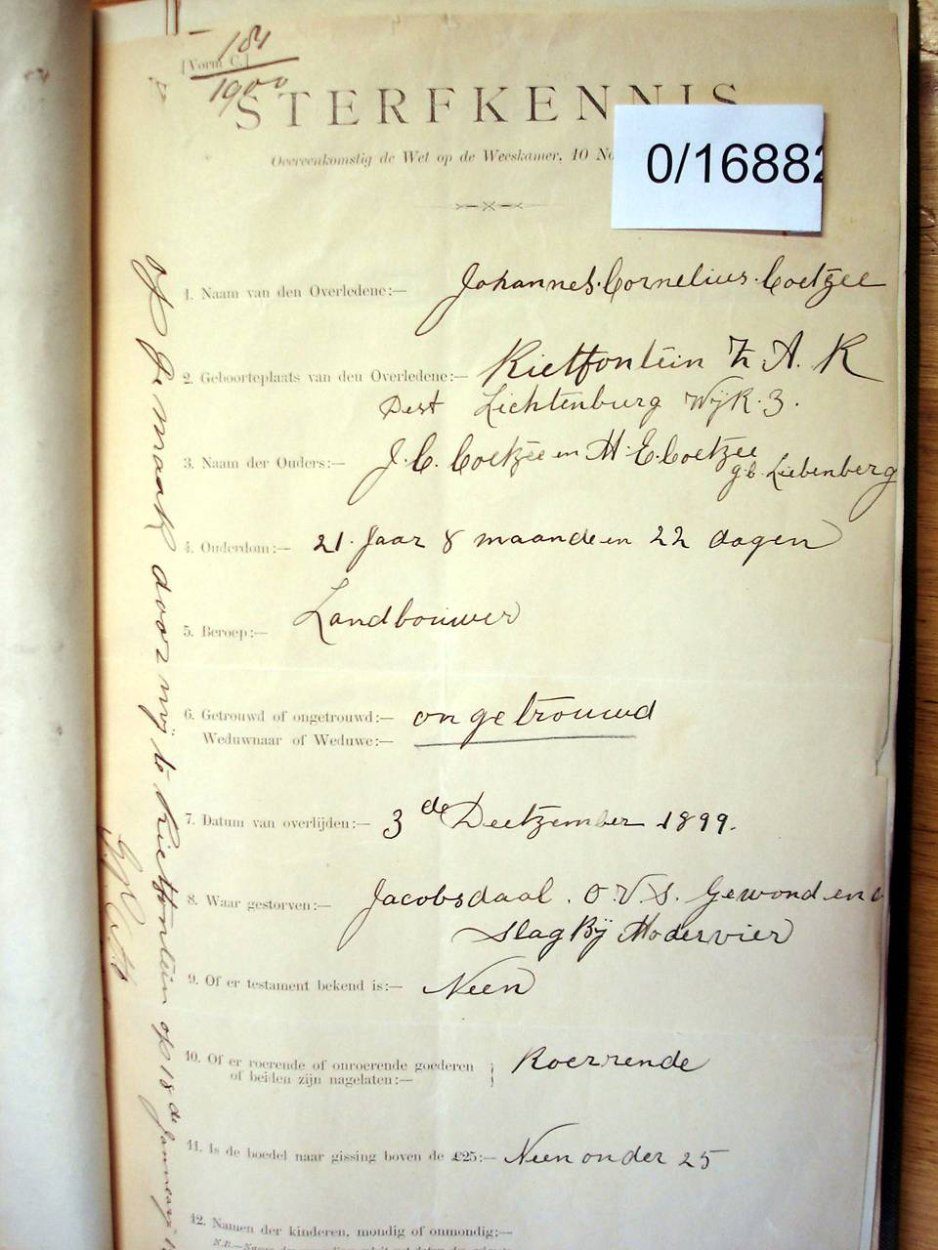 181
[Vorm C.]
1900
STERFKENNIS
Overeenkomstig de Wet op de Weeskamer, 10 No
0/16882
1. Naam van den Overledene:— Johannes Cornelius Coetzee
2. Geboorteplaats van den Overledene:— Rietfontein Z. A. R
Dest Lichtenburg Wyk 3.
3. Naam der Ouders:— J. C. Coetzee en M. E. Coetzee
g.b. Liebenberg
4. Ouderdom:— 21 Jaar 8 maande en 22 dagen
5. Beroep:— Landbouwer
6. Getrouwd of ongetrouwd:— ongetrouwd
Weduwnaar of Weduwe:—
7. Datum van overlijden:— 3de Deetzember 1899.
8. Waar gestorven:— Jacobsdaal. O.V.S. Gewond en
slag By Modervier
9. Of er testament bekend is:— Neen
10. Of er roerende of onroerende goederen
of beiden zijn nagelaten:— Roerrende
11. Is de boedel naar gissing boven de £25:— Neen onder 25
12. Namen der kinderen, mondig of onmondig:—
op ge maak door mij te Rietfontein op 18de Januari